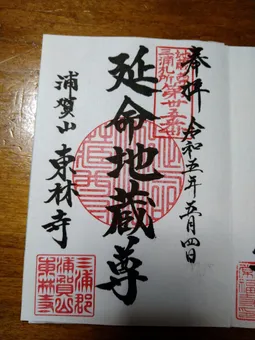 奉拝 令和五年 五月四日
三浦札所第廿五番
延命地蔵尊
浦賀山 東林寺
三浦郡
浦賀山
東林寺